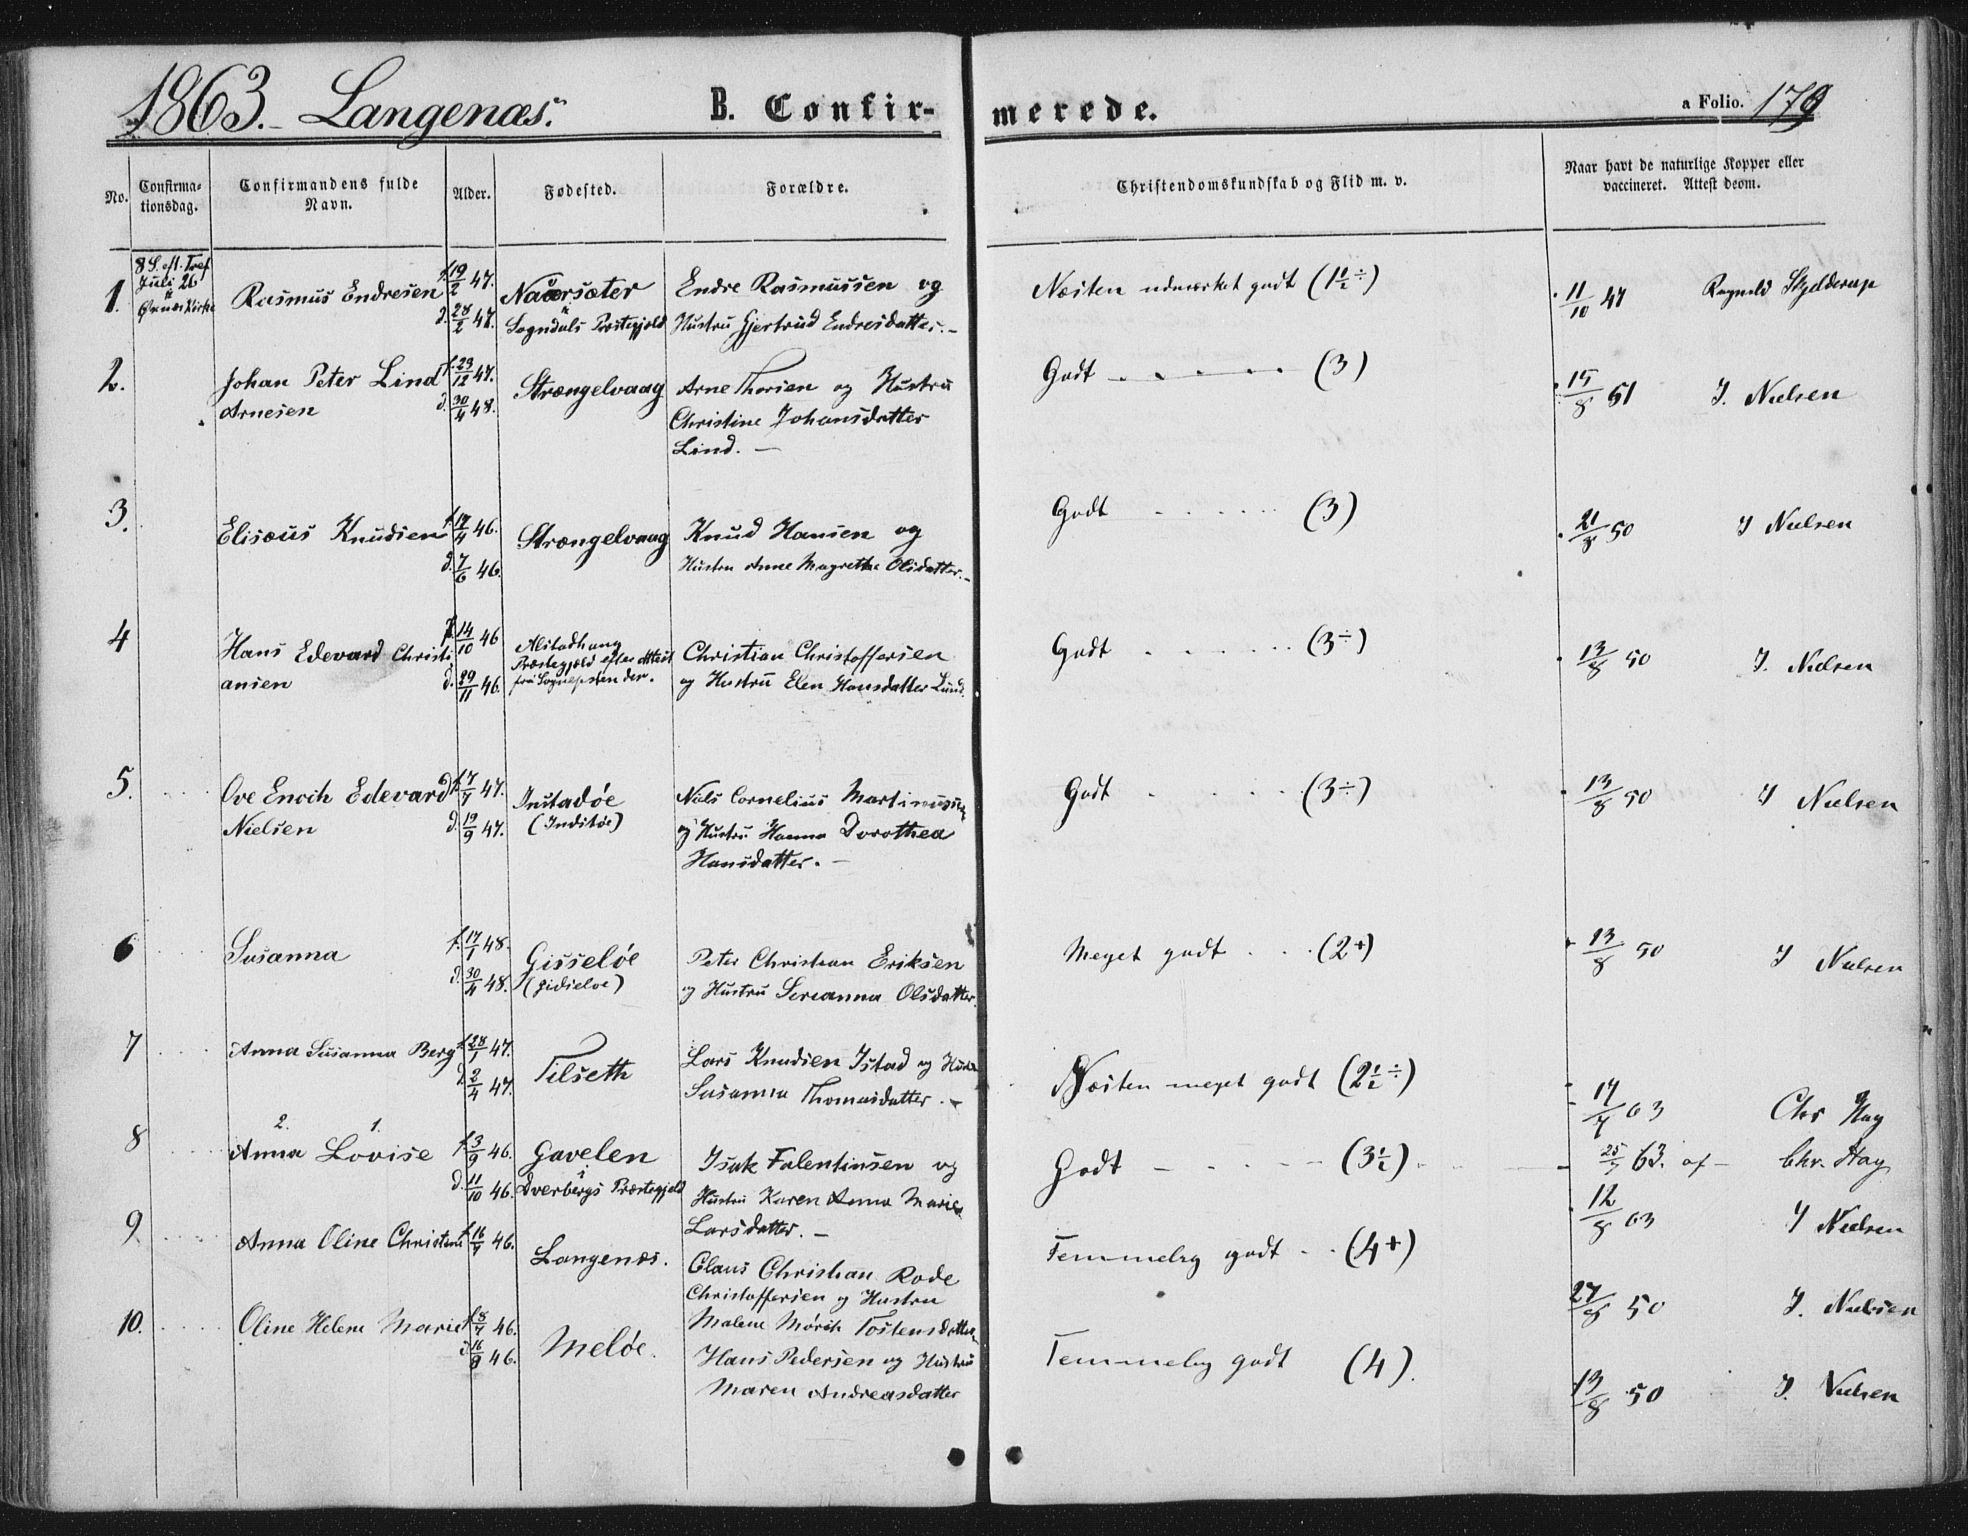 1863. Langenæs. B. Confirmerede. a Folio. 179
No. Confirmationsdag. Confirmandens fulde Navn. Alder. Fødested. Forældre. Christendomskundskab og Flid m. v. Naar havt de naturlige Kopper eller vaccineret. Attest deom.
1. 8 S. eft. Tref Juli 26 i Øxnes Kirke
Rasmus Endresen
f. 19/2 47.
d. 28/2 47.
Sogndals Præstegjeld
Endre Rasmussen og
Hustru Gjertrud Endresdatter.-
Næsten udmærket godt (1½÷)
11/10 47
2. Johan Peter Lind
Arnesen
f. 29/12 47.
d. 30/4 48.
Strængelvaag
Arne Thorsen og Hustru
Christine Johansdatter
Lind. -
Godt - - - - - (3)
15/8 51 J. Nielsen
3. Elisæus Knudsen
f. 17/4 46.
d. 7/6 46.
Strængelvaag
Knud Hansen og
Hustru Anne Magrethe Olsdatter.-
Godt . . . . . . (3)
21/8 50 J Nielsen
4 Hans Edevard Christi
ansen
f. 14/10 46
d. 29/11 46.
Alstadhaug
Præstegjeld efter Attest
fra Sognepræsten der.
Christian Christoffersen
og Hustru Elen Hansdatter Lund.
Godt . . . . . . (3÷)
13/8 50 J. Nielsen
5. Ove Enoch Edevard
Nielsen
f. 17/7 47.
d. 19/9 47.
Instadøe
(Inditøe)
Niels Cornelius Martinussen
og Hustru Hanna Dorothea
Hansdatter. -
Godt . . . . . . (3÷)
13/8 50 J Nielsen
6 Susanna
f. 17/1 48.
d. 30/4 48.
Gisseløe
Peter Christian Eriksen
og Hustru Sereanna Olsdatter.
Meget godt . . . (2+)
13/8 50 J Nielsen
7 Anna Susanna Berg
f. 28/1 47.
d. 2/4 47.
Tilseth
Lars Knudsen Istad og Hustru
Susanna Thomasdatter. -
Næsten meget godt (2½÷)
17/7 63 Chr Hag
8 2. 1.
Anna Lovise
f. 3/9 46.
d. 11/10 46.
Gavelen
i
Dverbergs Præstegjeld
Isak Falentinsen og
Hustru Karen Anna Marie
Larsdatter. -
Godt - - - - - (3½)
25/7 63. af - Chr. Hag
12/8 63 J Nielsen
9. Anna Oline Christine
f. 16/7 46.
Langenæs.
Claus Christian Rode
Christoffersen og Hustru
Malene Mørch Tostensdatter
Temmelig godt . . (4+)
27/8 50 J. Nielsen
10. Oline Helene Marie
f. 8/7 46.
d. 16/8 46.
Meløe.
Hans Pedersen og Hustru
Maren Andreasdatter
Temmelig godt (4).
13/8 50 J. Nielsen